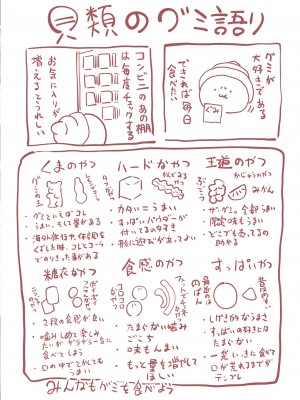 貝類のグミ語り
グミが
大好きである
できれば毎日
食べたい
ぐみ
コンビニのあの棚
は毎度チェックする
お気に入りが
増えるとうれしい
王道のやつ
かじゅうのやつ
ぶどう
みかん
・ザ・グミ。全部うまい
・限定味もうまい
・どこでも売ってるの
助かる
ハードなやつ
・カタい=うまい
・すっぱいパウダーが
付いてるの好き
・形に遊びがあってよい
くまのやつ
グミの王
・グミといえばコレ
・うまい。そして量がある
・海外旅行中、体調を
くずした時、コレとコーラ
でのりきった事がある
すっぱいやつ
・しげき的なうまさ
・すっぱいの好きには
たまらない
・一気にいきに食べて
口が荒れるまでが
テンプレ
食感のやつ
コロコロ
・たまらない噛み
ごこち
・味もんまい
・もっと量を増やして
ほしい
糖衣のやつ
・2段の食感が良い
・噛みしめて楽しみ
たいがザラザラ一気に
食べてしまう
・口の中でとかしても
うまい
みんなもグミを食べよう